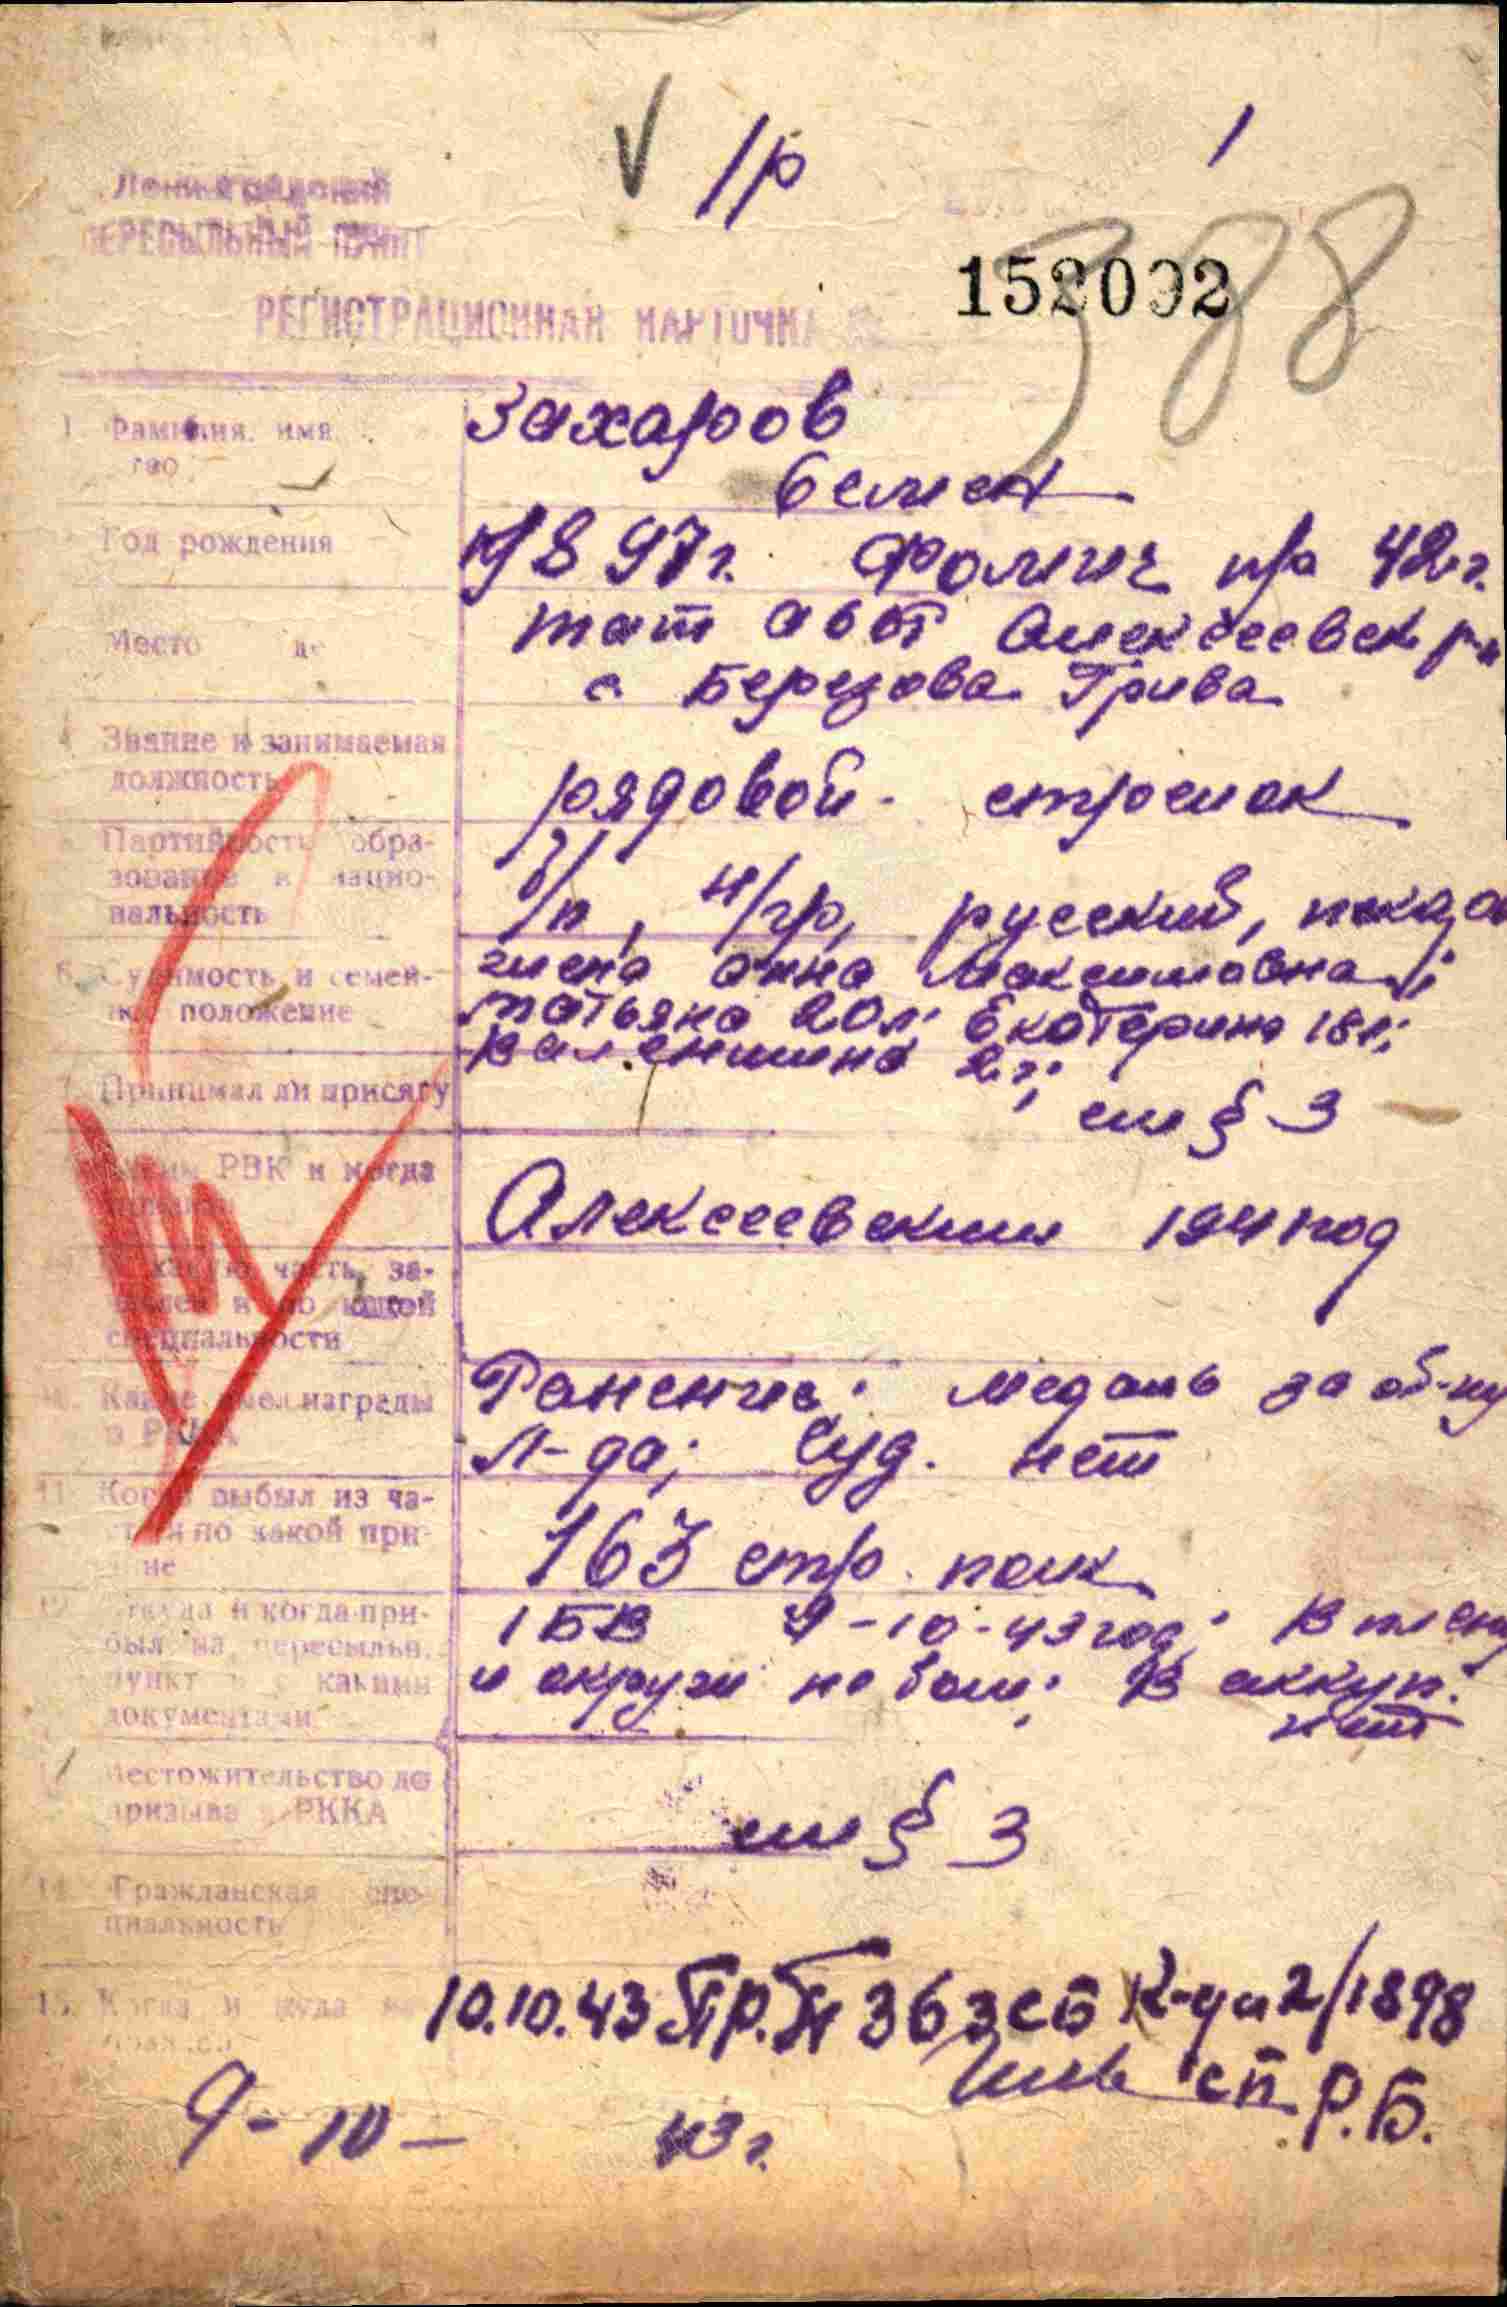 V 1р 1
Ленинградский
ПЕРЕСЫЛЬНЫЙ ПУНКТ
388
152092
РЕГИСТРАЦИОННАЯ КАРТОЧКА №
1. Фамилия, имя
Захаров
Семен
Год рождения
1897г. Фомич пр 42г.
Место
тат авт Алексеевск р-н
с Березова Грива
4. Звание и занимаемая
должность
рядовой - стрелок
Партийность обра-
зование и нацио-
нальность
б/п, н/гр, русский,
6. Судимость и семей-
ное положение
жена Анна Максимовна;
Татьяна 20л; Екатерина 18л;
Валентина 2г;
Принимал ли присягу
см § 3
РВК и когда
Алексеевским 1941год
часть, за-
и по какой
специальности
10. Какие имел награды
в РККА
Ранение; медаль за об-ну
Л-да; Суд. нет
11. Когда выбыл из ча-
по какой при-
не
163 стр. полк
12. Откуда и когда при-
был на пересыльн.
пункт и с какими
документами
1 БВ 9-10-43год; В плену
и окруж не был; В оккуп.
нет
Местожительство до
призыва в РККА
см § 3
14. Гражданская спе-
циальность
15. Когда и куда
10.10.43 Пр.П 36 зсп К-да 2/1898
сп Р.Б.
9-10- 43г.